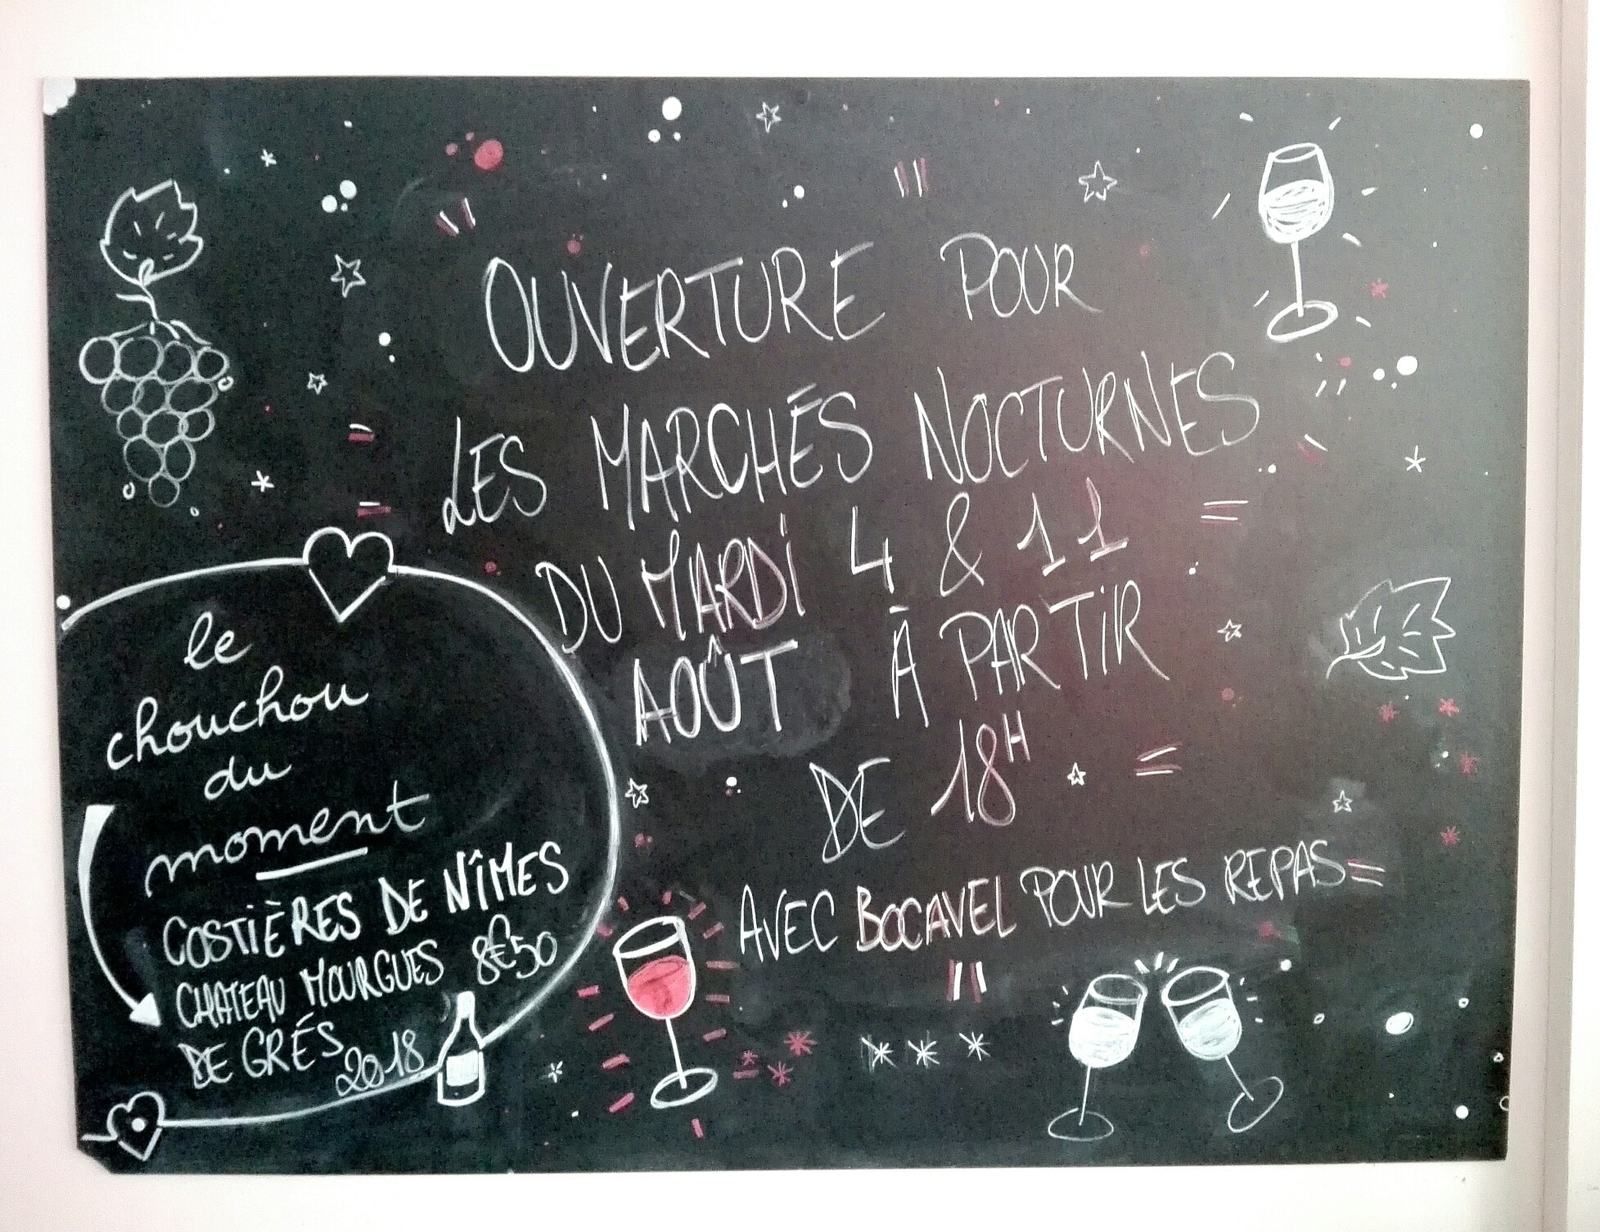 OUVERTURE POUR
LES MARCHÉS NOCTURNES
DU MARDI 4 & 11
AOÛT À PARTIR
DE 18H
AVEC BOCAVEL POUR LES REPAS
le
chouchou
du
moment
COSTIÈRES DE NÎMES
CHATEAU MOURGUES 8€50
DE GRÉS 2018